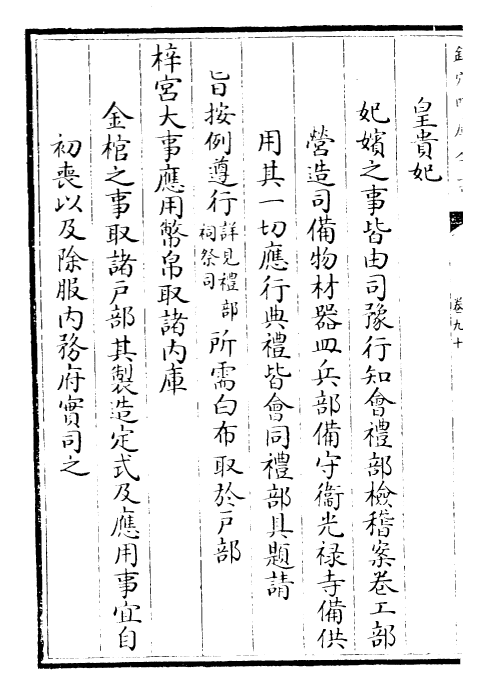 皇貴妃
妃嬪之事皆由司豫行知會禮部檢稽案卷工部
營造司備物材器皿兵部備守衞光禄寺備供
用其一切應行典禮皆會同禮部具題請
旨按例遵行詳見禮部祠祭司所需白布取於戸部
梓宮大事應用幣帛取諸内庫
金棺之事取諸戸部其製造定式及應用事宜自
初喪以及除服内務府實司之
卷九十